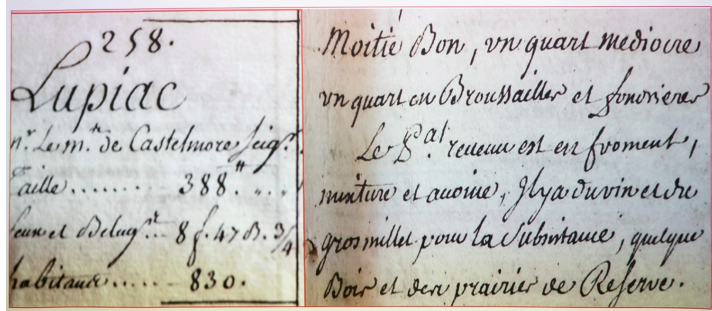 258.
Lupiac
nr. Le m.is de Castelmore Seigr.
aille ........ 388.tt " "
feux et Belugt... 8 f. 47 B. 3/4
habitans ..... 830.
Moitié Bon, vn quart mediocre
vn quart en Broussailles et fondrieres
Le P.al reuenu est en froment,
minture et auoine, Il y a du vin et du
gros millet pour la Subsistance, quelque
Bois et des prairies de Reserve.